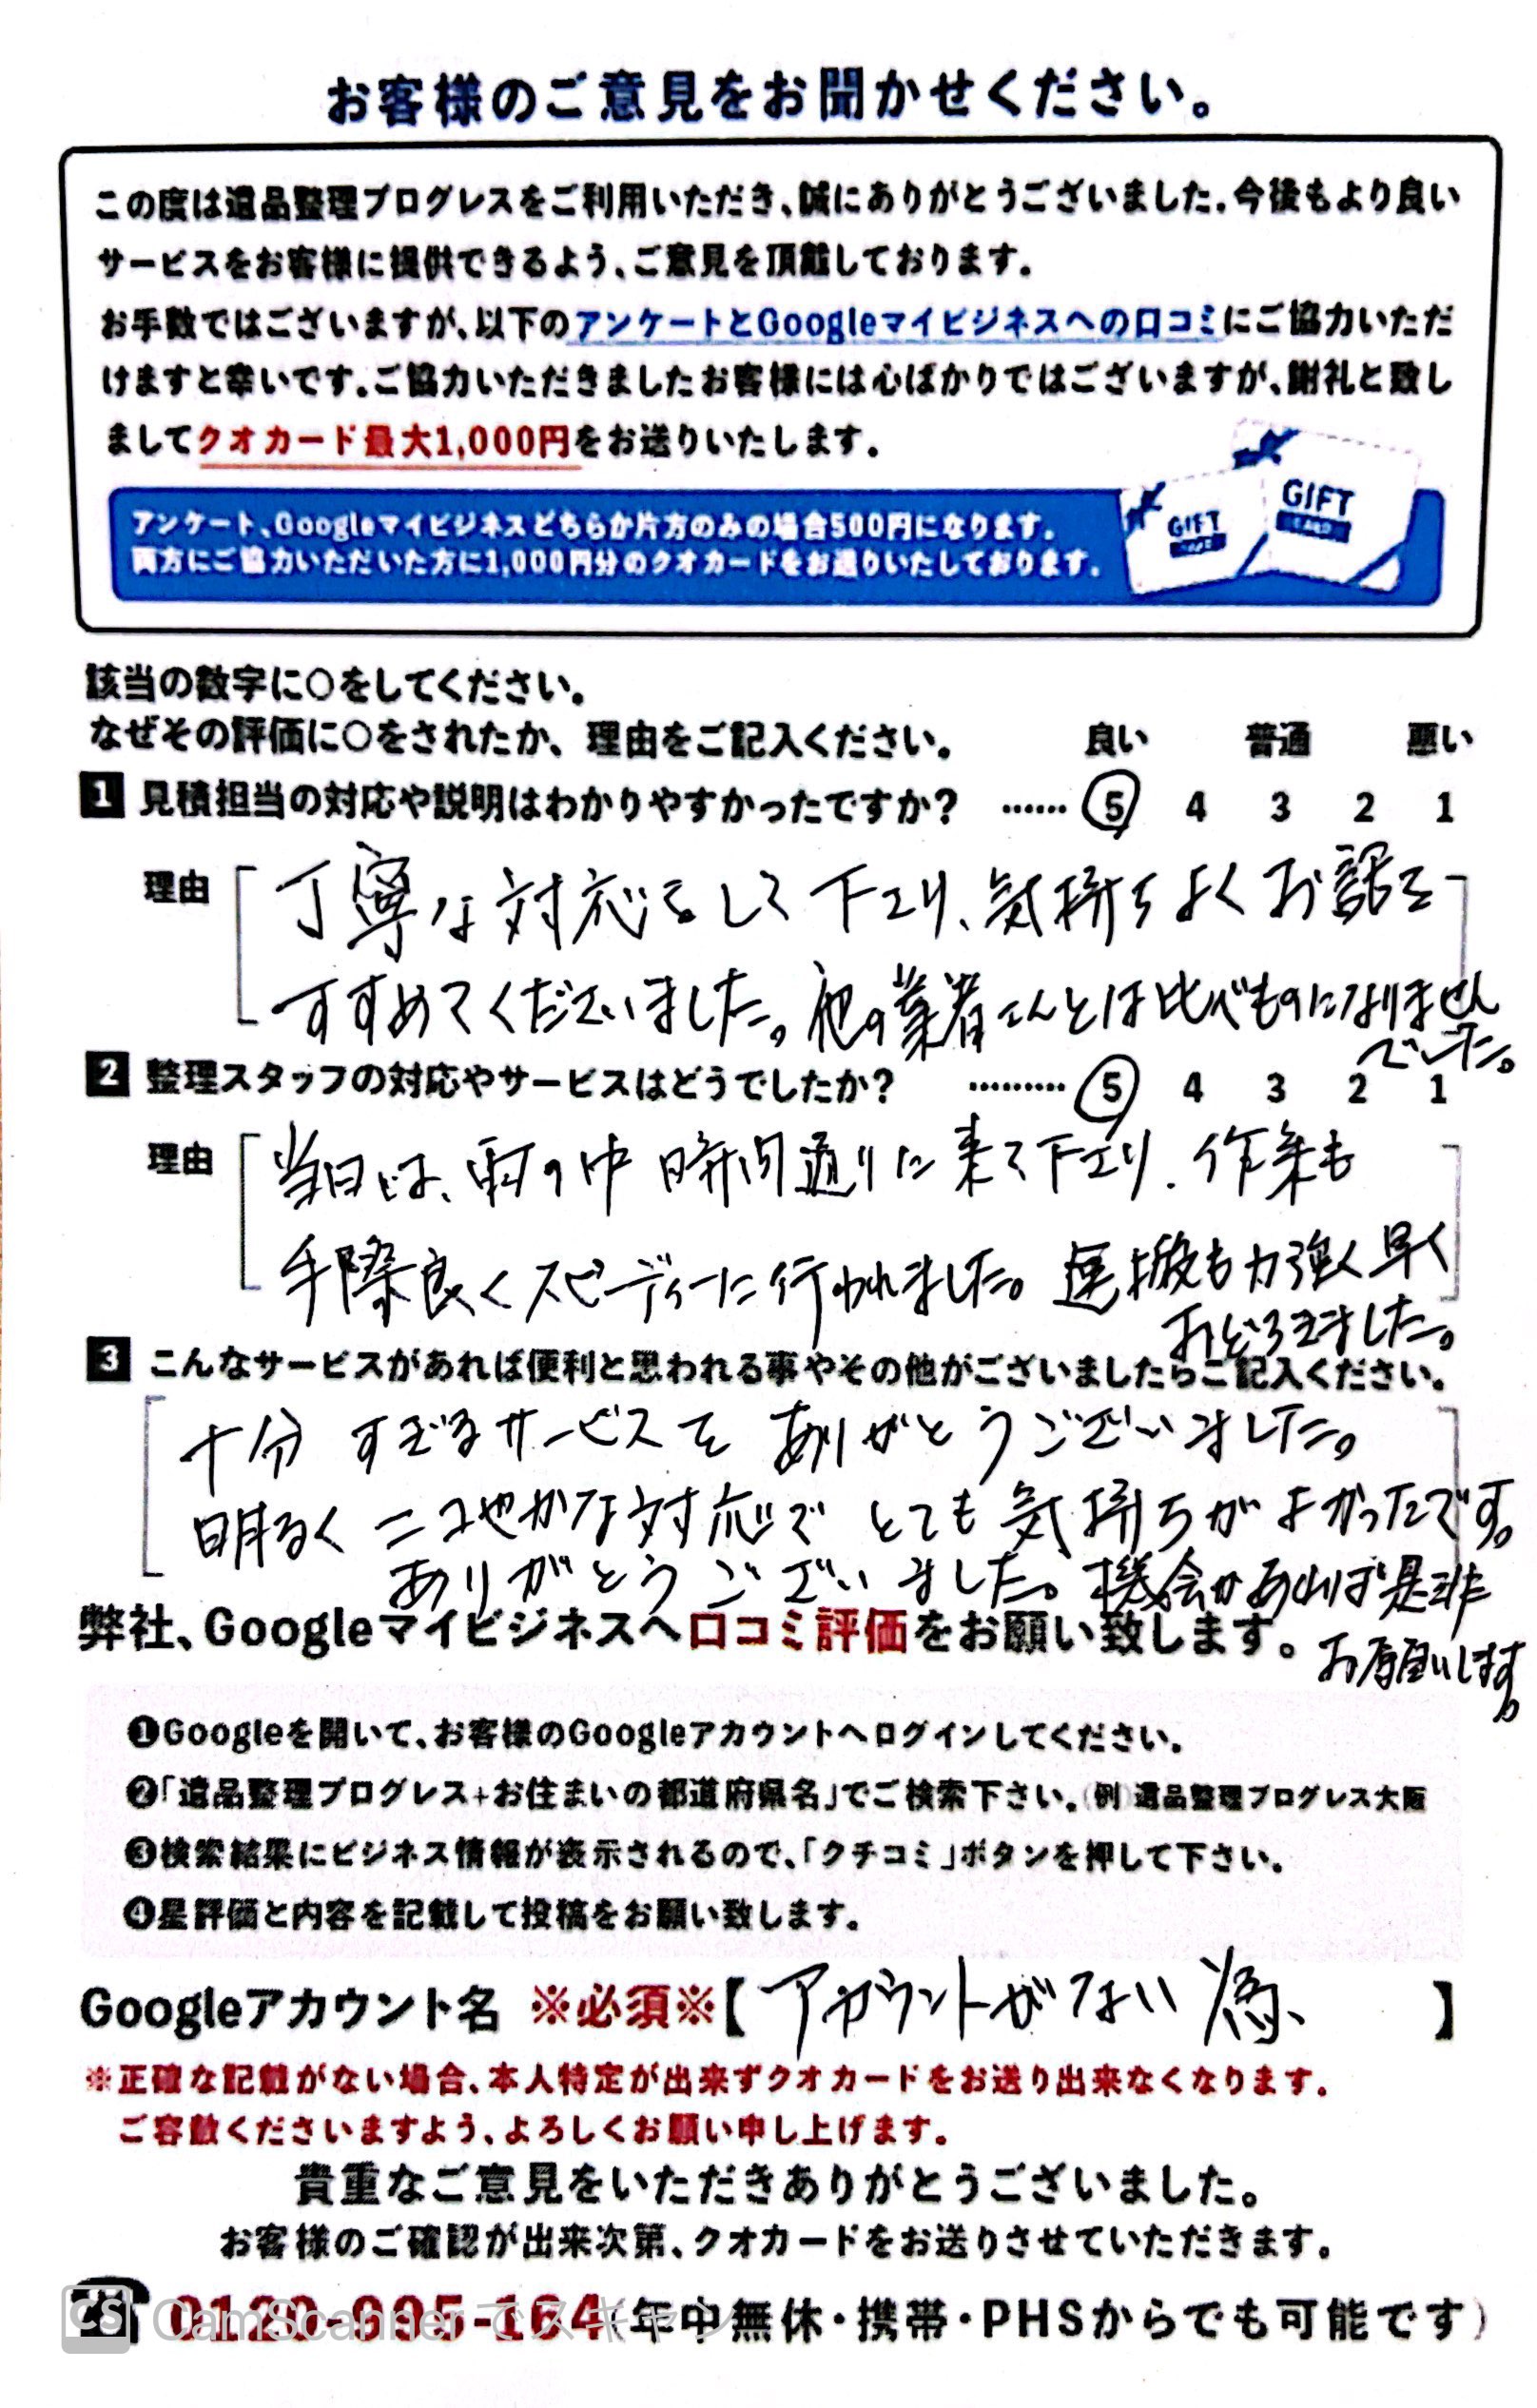 お客様のご意見をお聞かせください。
この度は遺品整理プログレスをご利用いただき、誠にありがとうございました。今後もより良い
サービスをお客様に提供できるよう、ご意見を頂戴しております。
お手数ではございますが、以下のアンケートとGoogleマイビジネスへの口コミにご協力いただ
けますと幸いです。ご協力いただきましたお客様には心ばかりではございますが、謝礼と致し
ましてクオカード最大1,000円をお送りいたします。
アンケート、Googleマイビジネスどちらか片方のみの場合500円になります。
両方にご協力いただいた方に1,000円分のクオカードをお送りいたしております。
GIFT CARD
GIFT CARD
該当の数字に〇をしてください。
なぜその評価に〇をされたか、理由をご記入ください。 良い 普通 悪い
1 見積担当の対応や説明はわかりやすかったですか? …… 5 4 3 2 1
理由 丁寧な対応をして下さり、気持ちよくお話を
すすめてくださいました。他の業者さんとは比べものになりません
でした。
2 整理スタッフの対応やサービスはどうでしたか? ……… 5 4 3 2 1
理由 当日は、雨の中 時間通りに来て下さり、作業も
手際良くスピーディーに行われました。運搬も力強く早く
おどろきました。
3 こんなサービスがあれば便利と思われる事やその他がございましたらご記入ください。
十分 すぎるサービスを ありがとうございました。
明るく ニコやかな対応で とても気持ちがよかったです。
ありがとうございました。機会があれば是非
お願いします。
弊社、Googleマイビジネスへ口コミ評価をお願い致します。
❶Googleを開いて、お客様のGoogleアカウントへログインしてください。
❷「遺品整理プログレス+お住まいの都道府県名」でご検索下さい。(例)遺品整理プログレス大阪
❸検索結果にビジネス情報が表示されるので、「クチコミ」ボタンを押して下さい。
❹星評価と内容を記載して投稿をお願い致します。
Googleアカウント名 ※必須※【アカウントがない為、】
※正確な記載がない場合、本人特定が出来ずクオカードをお送り出来なくなります。
ご容赦くださいますよう、よろしくお願い申し上げます。
貴重なご意見をいただきありがとうございました。
お客様のご確認が出来次第、クオカードをお送りさせていただきます。
☎0120-995-164(年中無休・携帯・PHSからでも可能です)
CS CamScannerでスキャン